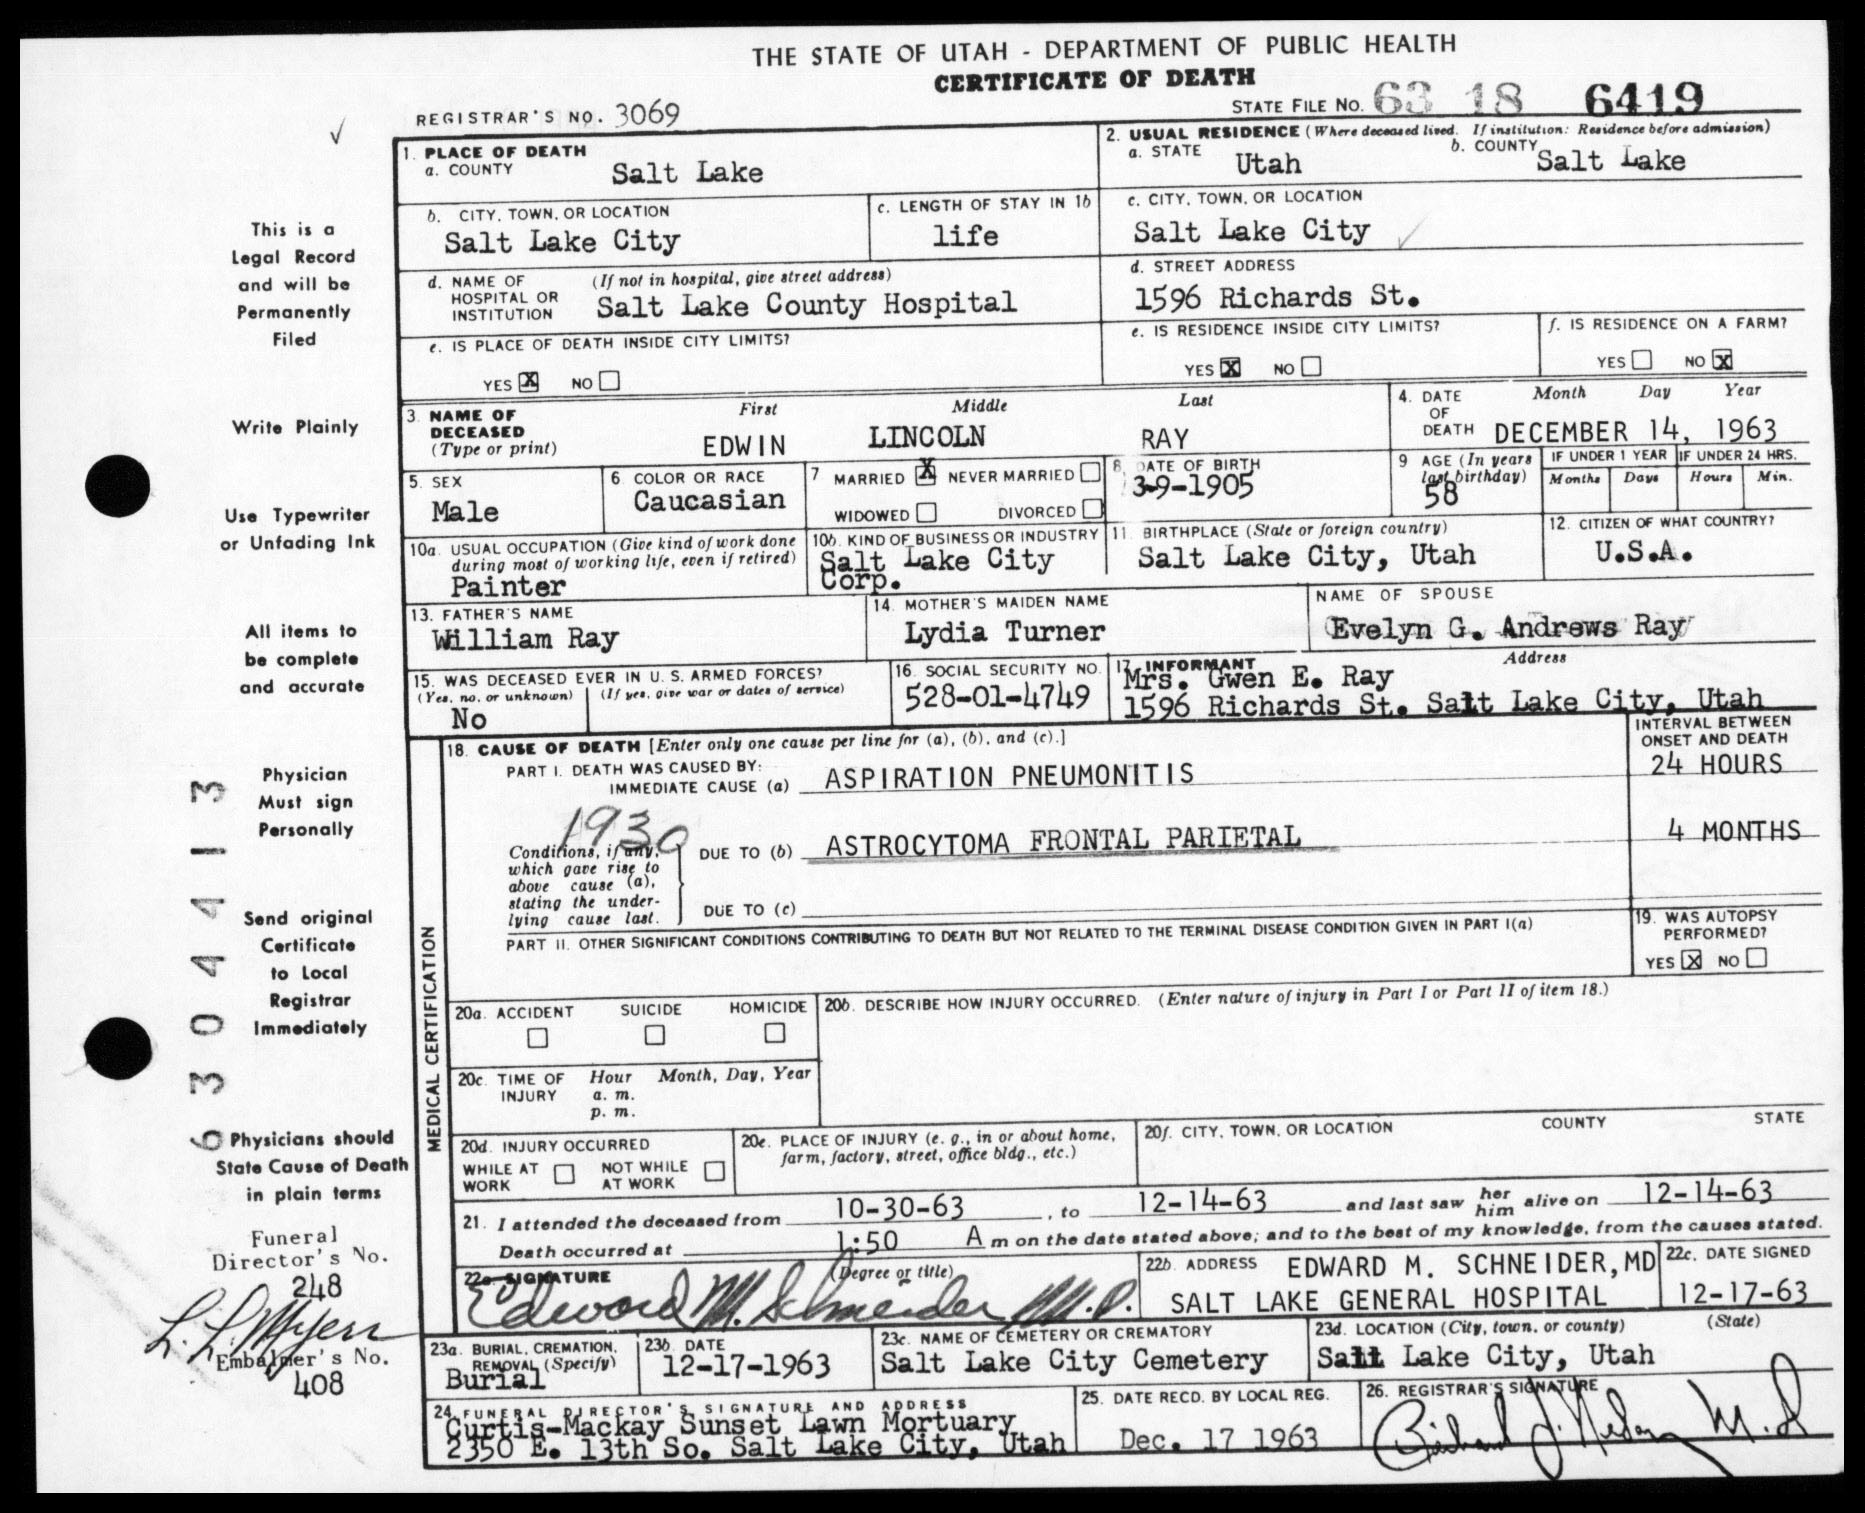 THE STATE OF UTAH - DEPARTMENT OF PUBLIC HEALTH
CERTIFICATE OF DEATH
REGISTRAR'S NO. 3069
STATE FILE NO. 63 18 6419
1. PLACE OF DEATH
a. COUNTY Salt Lake
2. USUAL RESIDENCE (Where deceased lived. If institution: Residence before admission)
a. STATE Utah b. COUNTY Salt Lake
b. CITY, TOWN, OR LOCATION
Salt Lake City
c. LENGTH OF STAY IN 1b
life
c. CITY, TOWN, OR LOCATION
Salt Lake City
d. NAME OF HOSPITAL OR INSTITUTION (If not in hospital, give street address)
Salt Lake County Hospital
d. STREET ADDRESS
1596 Richards St.
e. IS PLACE OF DEATH INSIDE CITY LIMITS?
YES X NO
e. IS RESIDENCE INSIDE CITY LIMITS?
YES X NO
f. IS RESIDENCE ON A FARM?
YES NO X
3. NAME OF DECEASED (Type or print)
First Middle Last
EDWIN LINCOLN RAY
4. DATE OF DEATH Month Day Year
DECEMBER 14, 1963
5. SEX
Male
6. COLOR OR RACE
Caucasian
7 MARRIED X NEVER MARRIED
WIDOWED DIVORCED
8. DATE OF BIRTH
3-9-1905
9 AGE (In years last birthday)
58
IF UNDER 1 YEAR IF UNDER 24 HRS.
Months Days Hours Min.
10a. USUAL OCCUPATION (Give kind of work done during most of working life, even if retired)
Painter
10b. KIND OF BUSINESS OR INDUSTRY
Salt Lake City
Corp.
11. BIRTHPLACE (State or foreign country)
Salt Lake City, Utah
12. CITIZEN OF WHAT COUNTRY?
U.S.A.
13. FATHER'S NAME
William Ray
14. MOTHER'S MAIDEN NAME
Lydia Turner
NAME OF SPOUSE
Evelyn G. Andrews Ray
15. WAS DECEASED EVER IN U. S. ARMED FORCES?
(Yes, no, or unknown) (If yes, give war or dates of service)
No
16. SOCIAL SECURITY NO.
528-01-4749
17. INFORMANT Address
Mrs. Gwen E. Ray
1596 Richards St. Salt Lake City, Utah
MEDICAL CERTIFICATION
18. CAUSE OF DEATH [Enter only one cause per line for (a), (b), and (c).]
INTERVAL BETWEEN ONSET AND DEATH
PART I. DEATH WAS CAUSED BY:
IMMEDIATE CAUSE (a) ASPIRATION PNEUMONITIS 24 HOURS
1930
Conditions, if any, which gave rise to above cause (a), stating the underlying cause last.
DUE TO (b) ASTROCYTOMA FRONTAL PARIETAL 4 MONTHS
DUE TO (c)
PART II. OTHER SIGNIFICANT CONDITIONS CONTRIBUTING TO DEATH BUT NOT RELATED TO THE TERMINAL DISEASE CONDITION GIVEN IN PART I(a)
19. WAS AUTOPSY PERFORMED?
YES X NO
20a. ACCIDENT SUICIDE HOMICIDE
20b. DESCRIBE HOW INJURY OCCURRED. (Enter nature of injury in Part I or Part II of item 18.)
20c. TIME OF INJURY Hour Month, Day, Year
a. m.
p. m.
20d. INJURY OCCURRED
WHILE AT WORK NOT WHILE AT WORK
20e. PLACE OF INJURY (e. g., in or about home, farm, factory, street, office bldg., etc.)
20f. CITY, TOWN, OR LOCATION COUNTY STATE
21. I attended the deceased from 10-30-63, to 12-14-63 and last saw her him alive on 12-14-63
Death occurred at 1:50 A m on the date stated above; and to the best of my knowledge, from the causes stated.
22a. SIGNATURE (Degree or title)
Edward M. Schneider M.D.
22b. ADDRESS EDWARD M. SCHNEIDER, MD
SALT LAKE GENERAL HOSPITAL
22c. DATE SIGNED
12-17-63
23a. BURIAL, CREMATION, REMOVAL (Specify)
Burial
23b. DATE
12-17-1963
23c. NAME OF CEMETERY OR CREMATORY
Salt Lake City Cemetery
23d. LOCATION (City, town, or county) (State)
Salt Lake City, Utah
24. FUNERAL DIRECTOR'S SIGNATURE AND ADDRESS
Curtis-Mackay Sunset Lawn Mortuary
2350 E. 13th So. Salt Lake City, Utah
25. DATE RECD. BY LOCAL REG.
Dec. 17 1963
26. REGISTRAR'S SIGNATURE
This is a
Legal Record
and will be
Permanently
Filed
Write Plainly
Use Typewriter
or Unfading Ink
All items to
be complete
and accurate
Physician
Must sign
Personally
Send original
Certificate
to Local
Registrar
Immediately
Physicians should
State Cause of Death
in plain terms
Funeral
Director's No.
248
L. L. Myers
Embalmer's No.
408
6304413